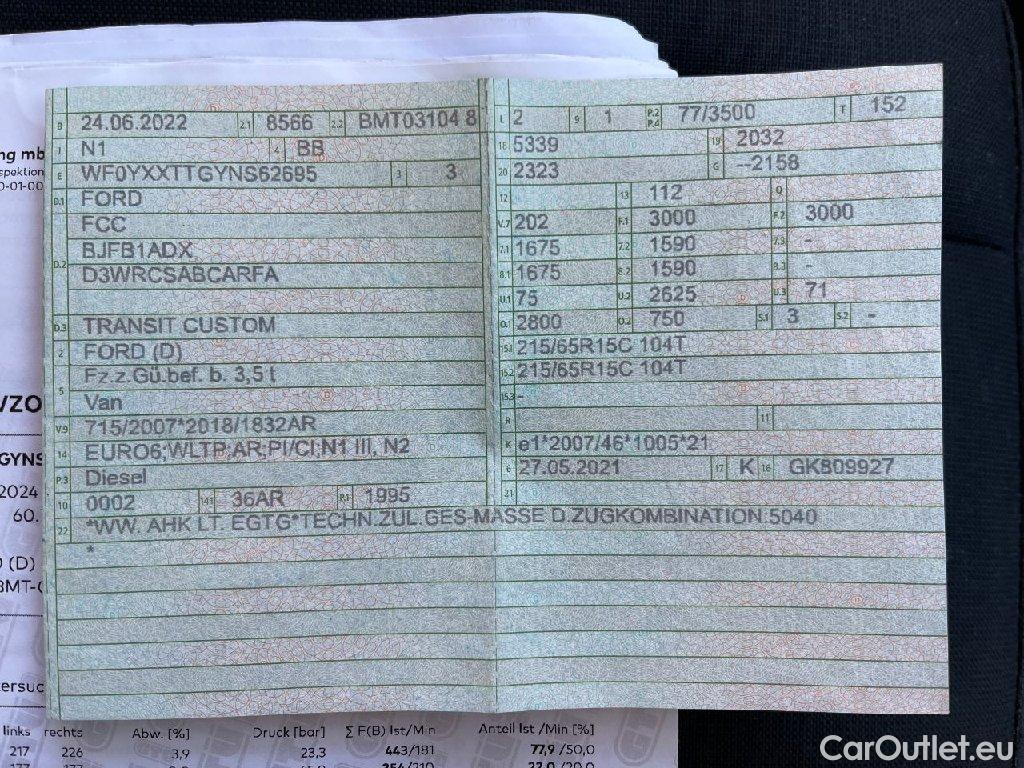 B 24.06.2022 2.1 8566 2.2 BMT03104 8
J N1 4 BB
E WF0YXXTTGYNS62695 3 3
D.1 FORD
FCC
D.2 BJFB1ADX
D3WRCSABCARFA
D.3 TRANSIT CUSTOM
2 FORD (D)
5 Fz.z.Gü.bef. b. 3,5 t
Van
V.9 715/2007*2018/1832AR
14 EURO6;WLTP;AR;PI/CI;N1 III, N2
P.3 Diesel
10 0002 14.1 36AR P.1 1995
L 2 9 1 P.2 P.4 77/3500 T 152
18 5339 19 2032
20 2323 G --2158
12 13 112 Q
V.7 202 F.1 3000 F.2 3000
7.1 1675 7.2 1590 7.3 -
8.1 1675 8.2 1590 8.3 -
U.1 75 U.2 2625 U.3 71
O.1 2800 O.2 750 S.1 3 S.2 -
15.1 215/65R15C 104T
15.2 215/65R15C 104T
15.3 -
R 11
K e1*2007/46*1005*21
6 27.05.2021 17 K 16 GK809927
21
22 *WW. AHK LT. EGTG*TECHN.ZUL.GES-MASSE D.ZUGKOMBINATION 5040
*
ng mb
0-01-00
VZO
GYNS
2024
60.
(D)
BMT-
tersuc
links rechts Abw. [%] Druck [bar] Σ F(B) Ist/Min Anteil Ist /Min [%]
217 226 3,9 23,3 443/181 77,9 /50,0
CarOutlet.eu